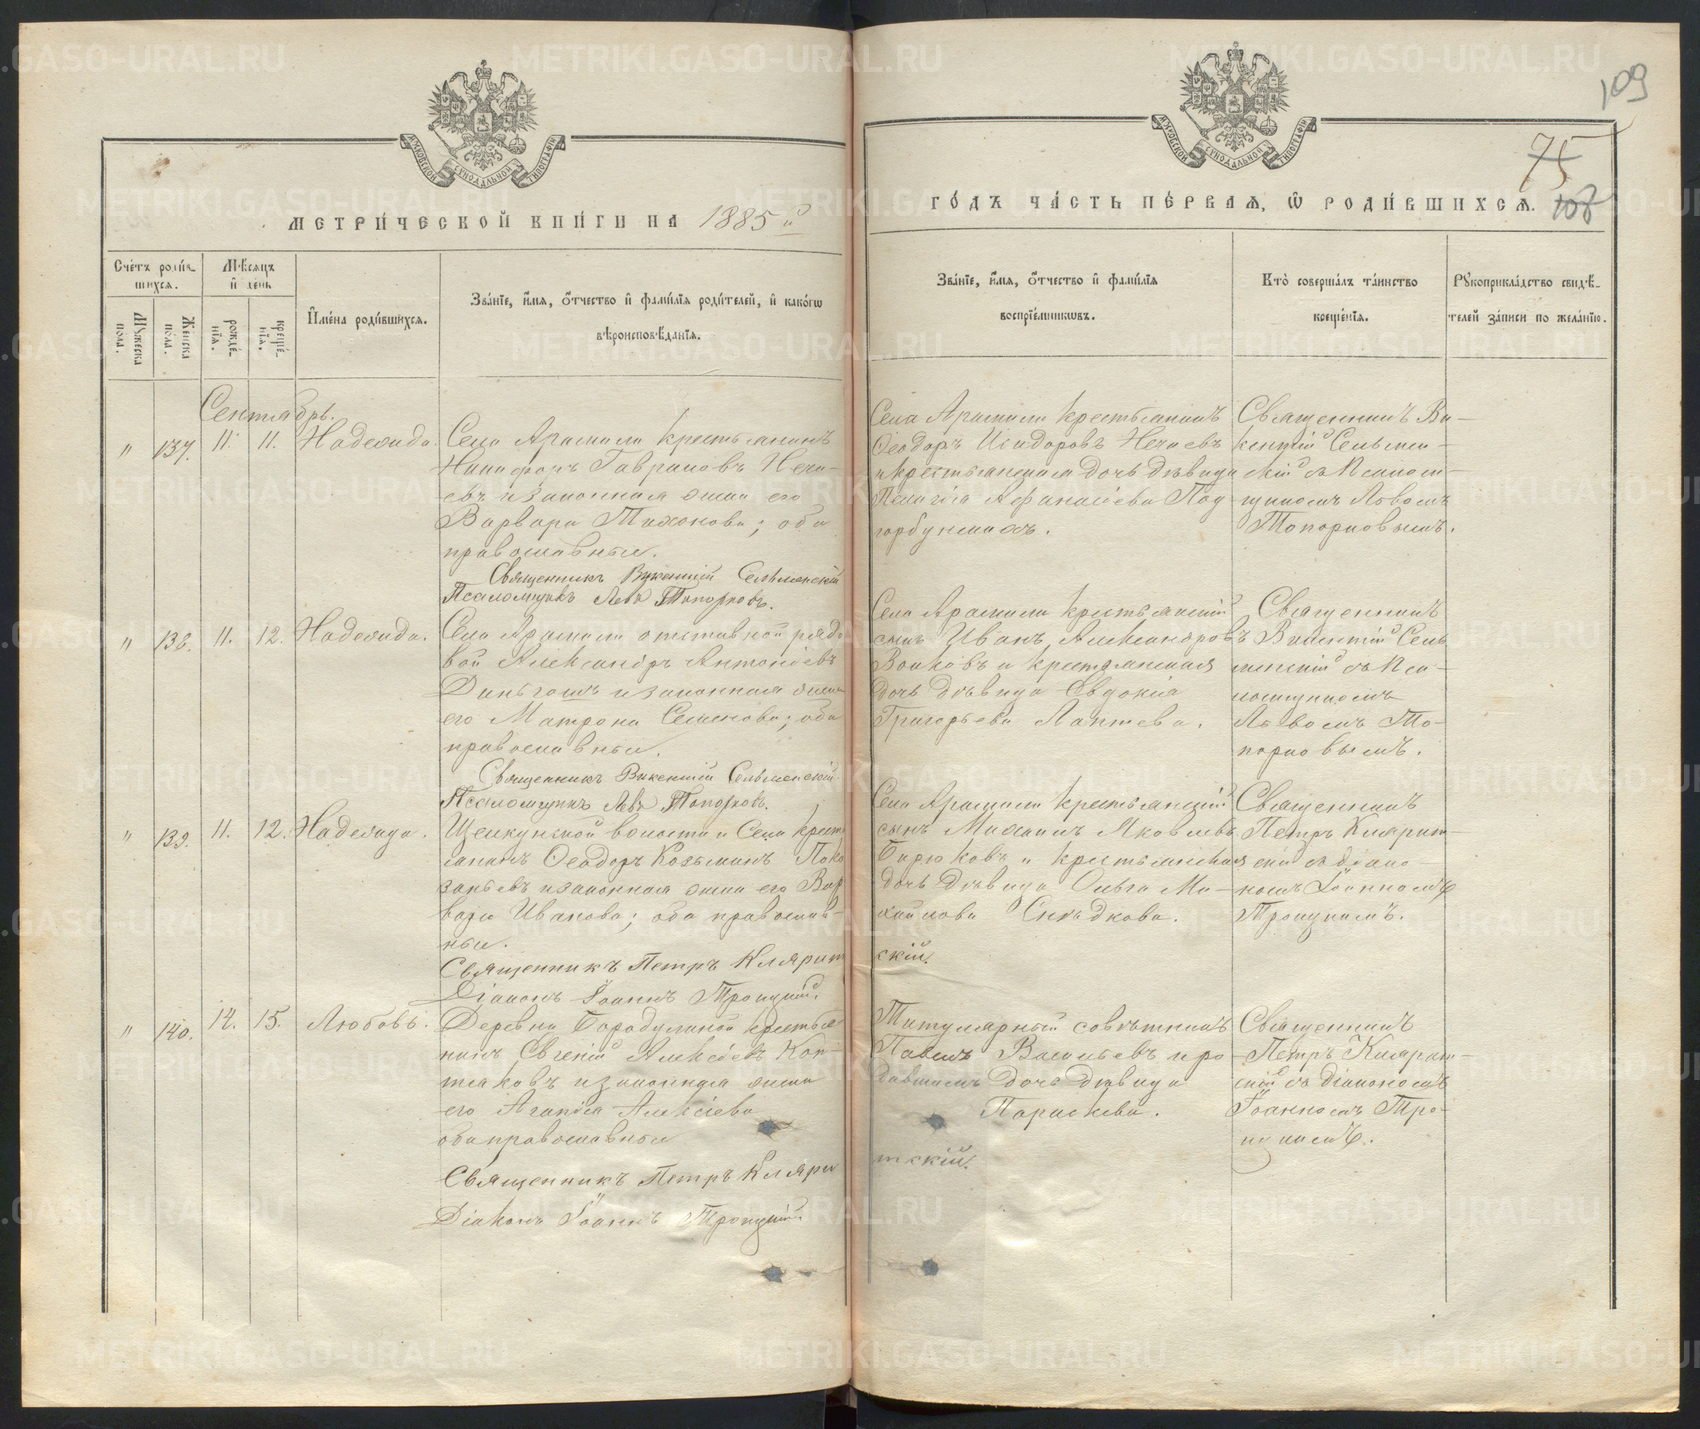 МЕТРИ́ЧЕСКОЙ КНИ́ГИ НА 1885 й
ГО́ДЪ ЧА́СТЬ ПЕ́РВАЯ, Ѽ РОДИ́ВШИХСЯ.
109
75
108
Сче́тъ роди́в-
шихся.
Мѣ́сяцъ
и҆ де́нь
Мꙋ́жеска по́ла.
Же́нска по́ла.
рожде́нїѧ.
креще́нїѧ.
И҆мена̀ роди́вшихся.
Зва́нїе, и҆́мѧ, ѻ҆́тчество и҆ фамилїѧ роди́телей, и҆ како́гѡ
вѣроисповѣ́данїѧ.
Зва́нїе, и҆́мѧ, ѻ҆́тчество и҆ фами́лїѧ
воспрїе́мникѡвъ.
Кто̀ соверша́лъ та́инство
креще́нїѧ.
Рꙋкоприкла́дство свидѣ́-
телей за́писи по жела́нїю.
Сентябрь.
" 137. 11. 11. Надежда.
Села Арамили крестьянинъ
Никифоръ Гавриловъ Неча-
евъ и законная жена его
Варвара Тихонова; оба
православные.
Священникъ Викентий Сельменский
Псаломщикъ Левъ Топорковъ.
Села Арамили крестьянинъ
Ѳеодоръ Исидоровъ Нечаевъ
и крестьянская дочь дѣвица
Пелагія Афанасіева Под-
горбунскихъ.
Священникъ Ви-
кентій Сельмен-
скій съ Псалом-
щикомъ Львомъ
Топорковымъ.
" 138. 11. 12. Надежда.
Села Арамили отставной рядо
вой Александръ Антоніевъ
и законная жена
его Матрона Семенова; оба
православные.
Священникъ Викентій Сельменскій
Псаломщикъ Левъ Топорковъ.
Села Арамили крестьянскій
сынъ Иванъ Александровъ
Волковъ и крестьянская
дочь дѣвица Евдокія
Григорьева Лаптева.
Священникъ
Викентій Сель
менскій съ Пса-
ломщикомъ
Львомъ То-
порковымъ.
" 139. 11. 12. Надежда.
Щелкунской волости и Села крест
янинъ Ѳеодоръ Козьминъ
и законная жена его Вар
вара Иванова; оба православ-
ные.
Священникъ Петръ Кляритскій.
Діаконъ Іоаннъ Троицкій.
Села Арамили крестьянскій
сынъ Михаилъ Яковлевъ
Бирюковъ и крестьянская
дочь дѣвица Ольга Ми-
хайлова
Священникъ
Петръ Клярит-
скій съ діако-
номъ Іоанномъ
Троицкимъ.
" 140. 14. 15. Любовь.
Деревни Бородулиной крестья
нинъ Евгеній Алексѣевъ Коп-
тяковъ и законная жена
его Агапія Алексіева
оба православные
Священникъ Петръ Кляритскій.
Діаконъ Іоаннъ Троицкій
Титулярный совѣтникъ
Павелъ Васильевъ
дочь дѣвица
Параскева.
Священникъ
Петръ Клярит-
скій съ діакономъ
Іоанномъ Тро-
ицкимъ.